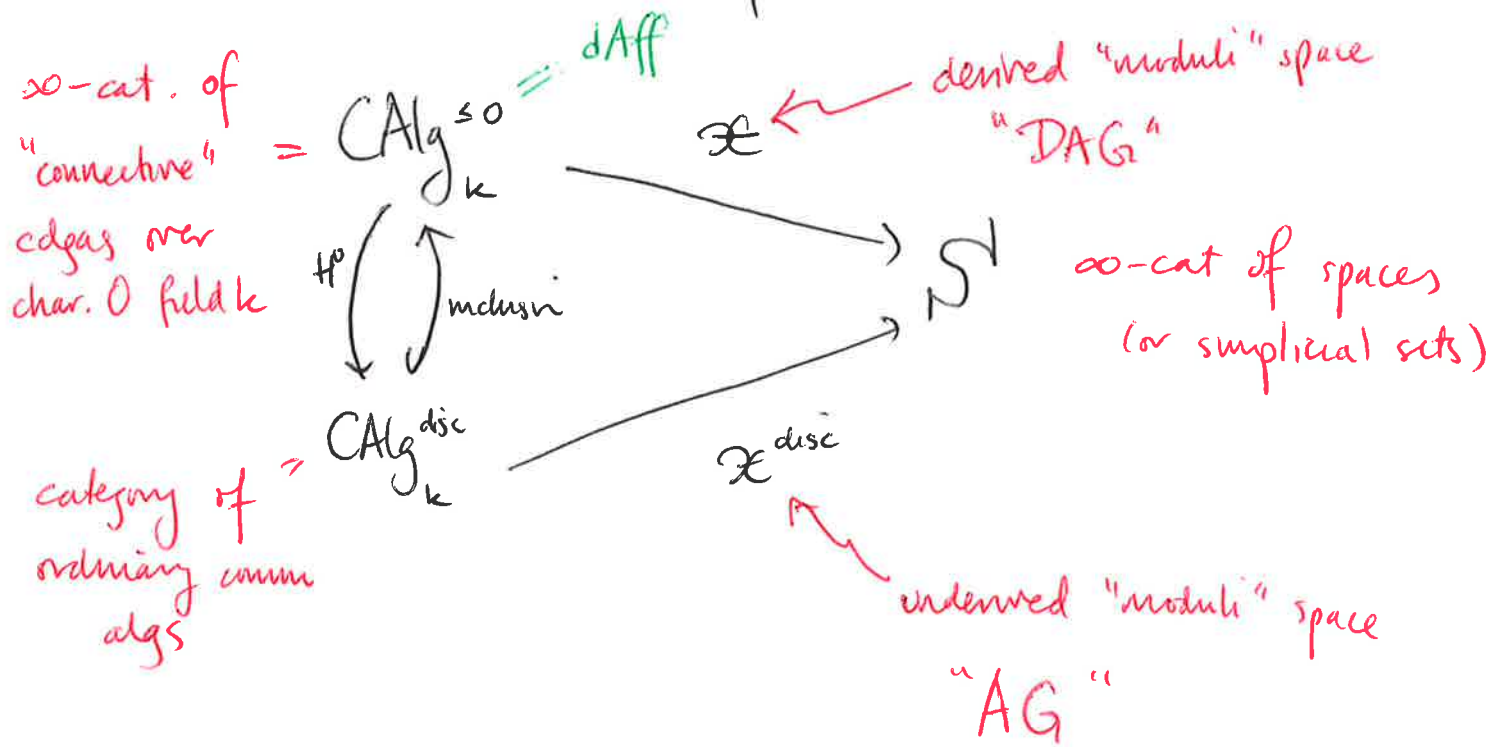 ∞-cat. of
"connective"
cdgas over
char. 0 field k
=
CAlg_k^{≤0}
= dAff
𝒳
derived "moduli" space
"DAG"
H⁰
inclusion
S
∞-cat of spaces
(or simplicial sets)
category of
ordinary comm
algs
=
CAlg_k^{disc}
𝒳^{disc}
underived "moduli" space
"AG"